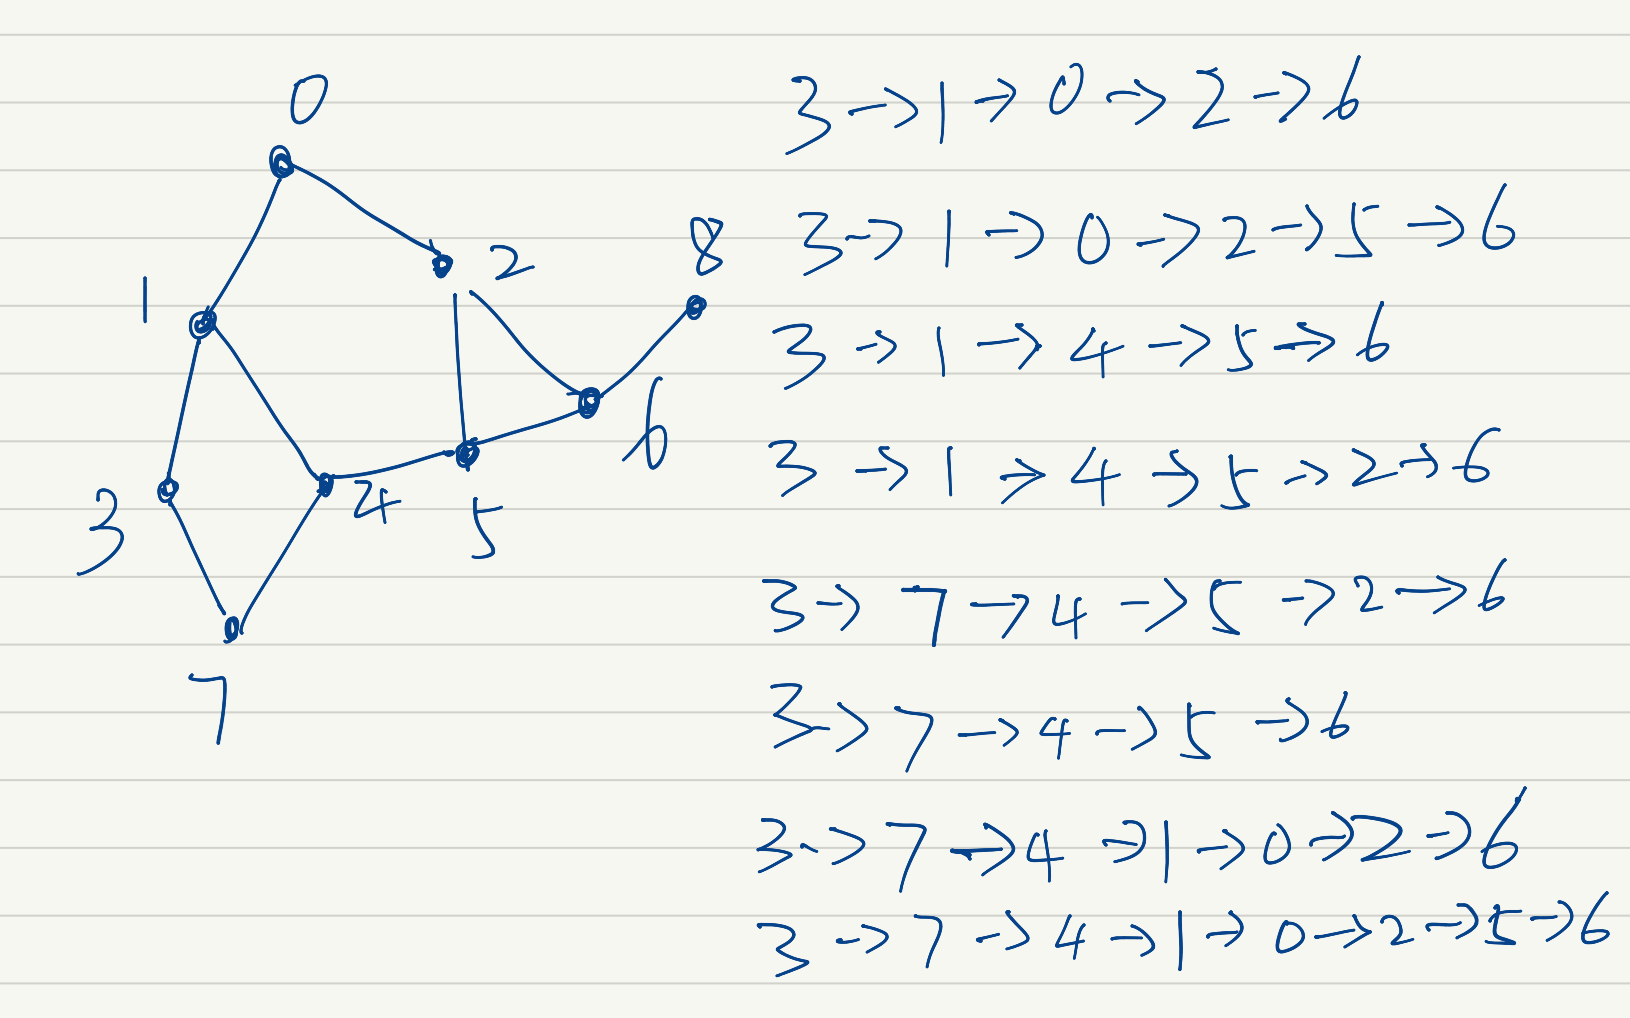 0
1
2
8
6
3
4
5
7
3→1→0→2→6
3→1→0→2→5→6
3→1→4→5→6
3→1→4→5→2→6
3→7→4→5→2→6
3→7→4→5→6
3→7→4→1→0→2→6
3→7→4→1→0→2→5→6